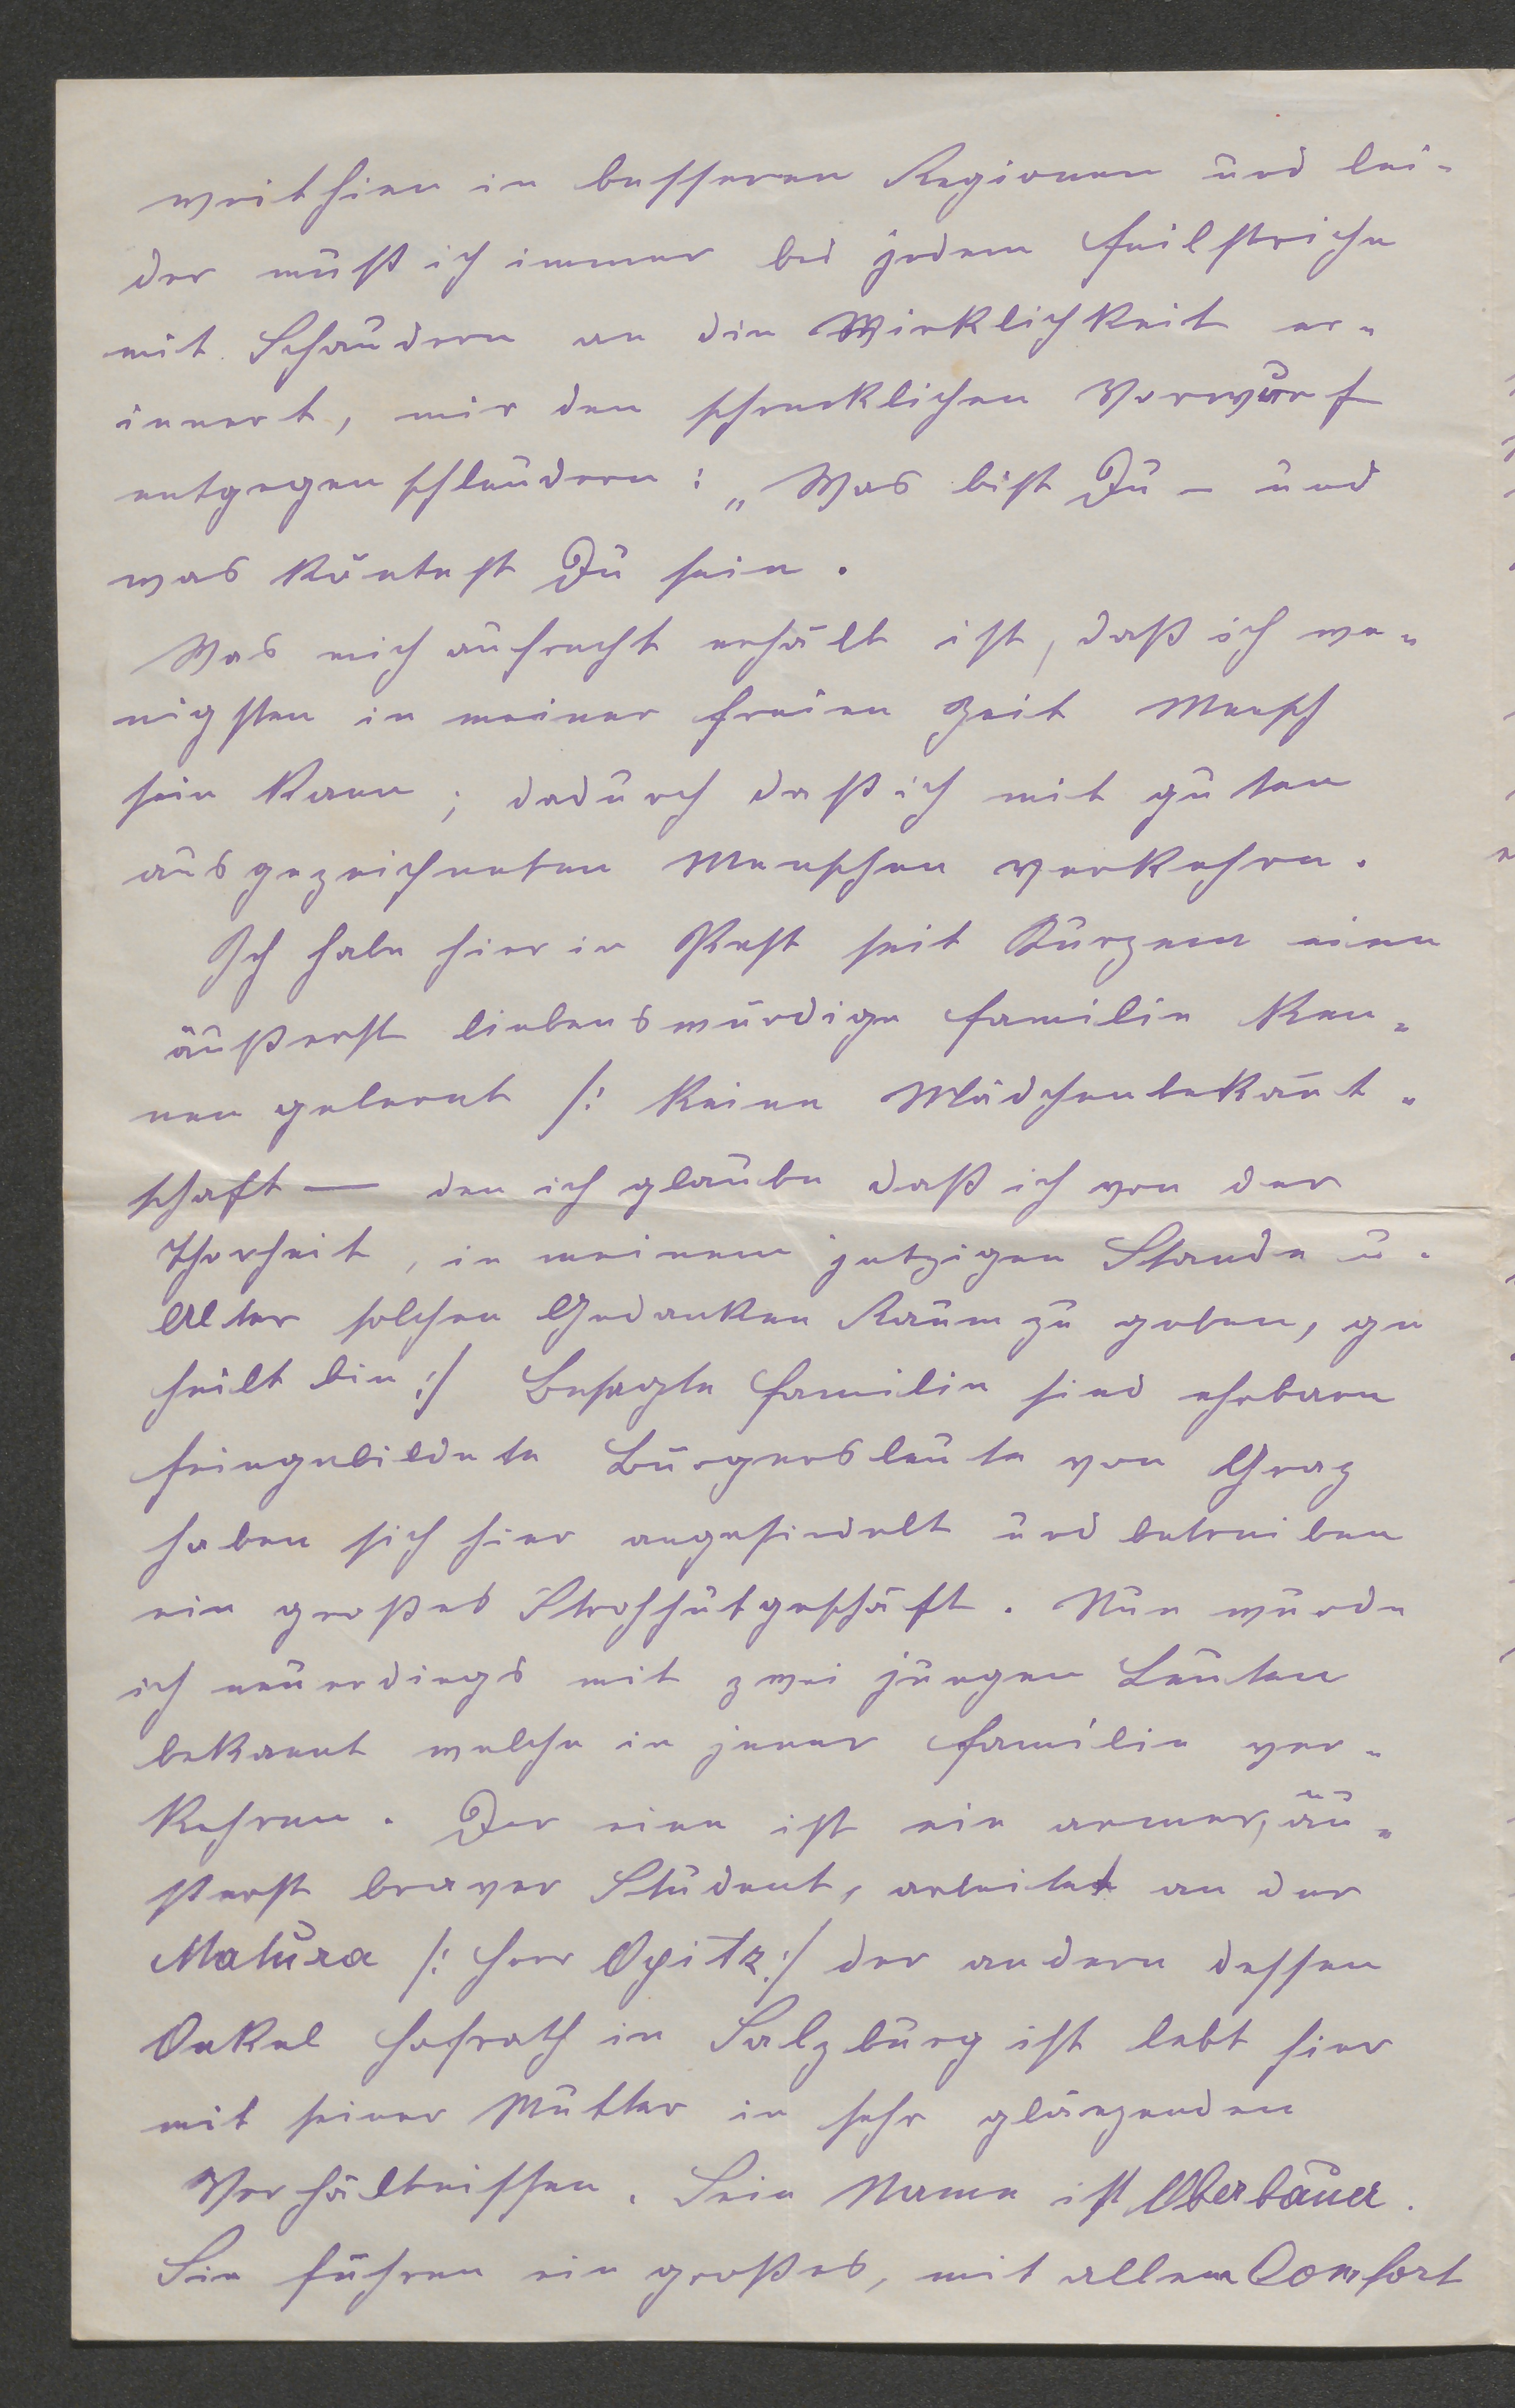 weithien in besseren Regionen und lei-
der muß ich immer bei jedem Feilstriche
mit Schaudern an die Wirklichkeit er-
innert, mir den schrecklichen Vorwurf
entgegen schleudern: „Was bist Du – und
was köntest Du sein.
Was mich aufrecht erhält ist, daß ich we-
nigsten in meiner freien Zeit Mensch
sein kann; dadurch daß ich mit guten
ausgezeichneten Menschen verkehre.
Ich habe hier in Pest seit Kurzem eine
äußerst liebenswürdige Familie ken-
nen gelernt /: keine Mädchenbekan̄t-
schaft — den ich glaube daß ich von der
Thorheit, in meinem jetzigen Stande u.
Alter solchen Gedanken Raum zu geben, ge
heilt bin :/ Besagte Familie sind ehrbare
feingebildete Bürgersleute von Graz
haben sich hier angesiedelt und betreiben
ein großes Strohhutgeschäft. Nun wurde
ich neuerdings mit zwei jungen Leuten
bekannt welche in jener Familie ver-
kehren. Der eine ist ein armer, äu-
ßerst braver Student, arbeitet an der
Matura /: Herr Opitz :/ der andere dessen
Onkel Hofrath in Salzburg ist lebt hier
mit seiner Mutter in sehr glänzenden
Verhältnissen. Sein Name ist Oberbauer.
Sie führen ein großes, mit allem Comfort